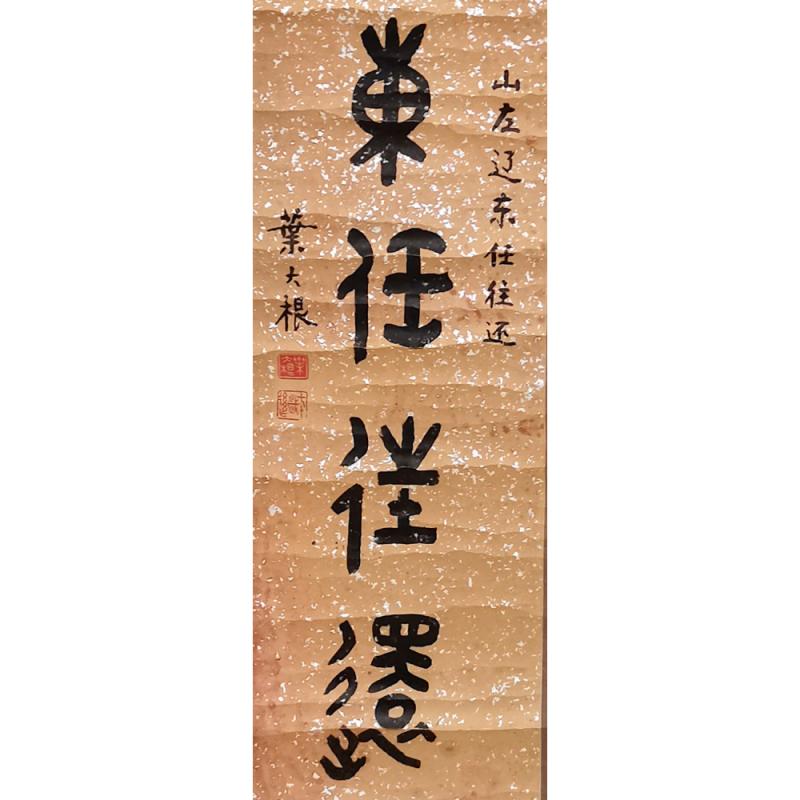 山左辽东任往还
東任往還
葉大根